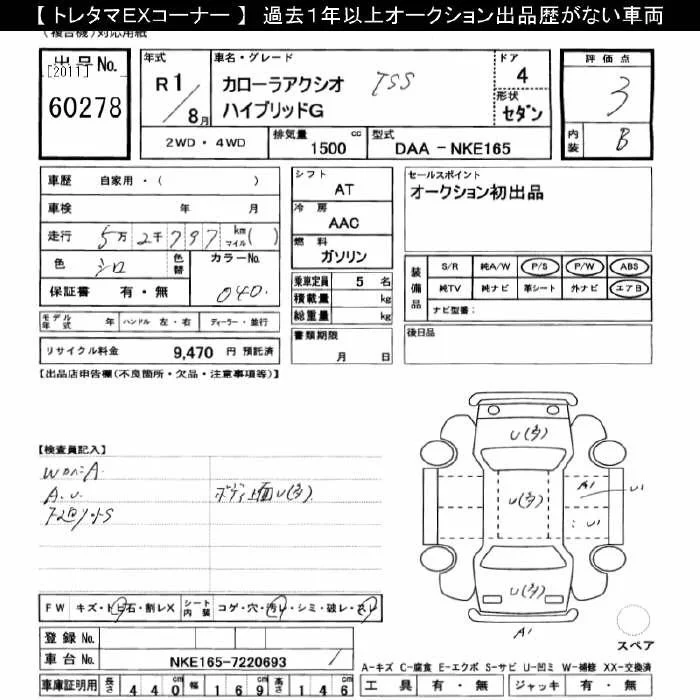 【 トレタマEXコーナー 】 過去1年以上オークション出品歴がない車両
(複合機)対応用紙
出品No.
[2011]
60278
年式
R1/8月
車名・グレード
カローラアクシオ TSS
ハイブリッドG
ドア
4
形状
セダン
評価点
3
内装
B
2WD・4WD
排気量 1500 cc
型式 DAA－NKE165
車歴 自家用・( )
車検 年 月
走行 5万2千797 km マイル ( )
色 シロ
色替
カラーNo. 040.
保証書 有・無
モデル年式 年 ハンドル 左・右 ディーラー・並行
リサイクル料金 9,470 円 預託済
シフト AT
冷房 AAC
燃料 ガソリン
乗車定員 5 名
積載量 kg
総重量 kg
書類期限
月 日
セールスポイント
オークション初出品
装備品
S/R 純A/W P/S P/W ABS
純TV 純ナビ 革シート 外ナビ エアB
ナビ型番：
後日品
【出品店申告欄(不良箇所・欠品・注意事項等)】
【検査員記入】
A.U.
ボディ上面U(多)
U(多)
U(多)
U(多)
A1
U1
U1
A1
スペア
FW キズ・トビ石・割レX シート内装 コゲ・穴・汚レ・シミ・破レ・スレ
登録No.
車台No. NKE165-7220693
車庫証明用 長さ 440 cm 幅 169 cm 高さ 146 cm
A－キズ C－腐食 E－エクボ S－サビ U－凹ミ W－補修 XX－交換済
工具 有・無 ジャッキ 有・無